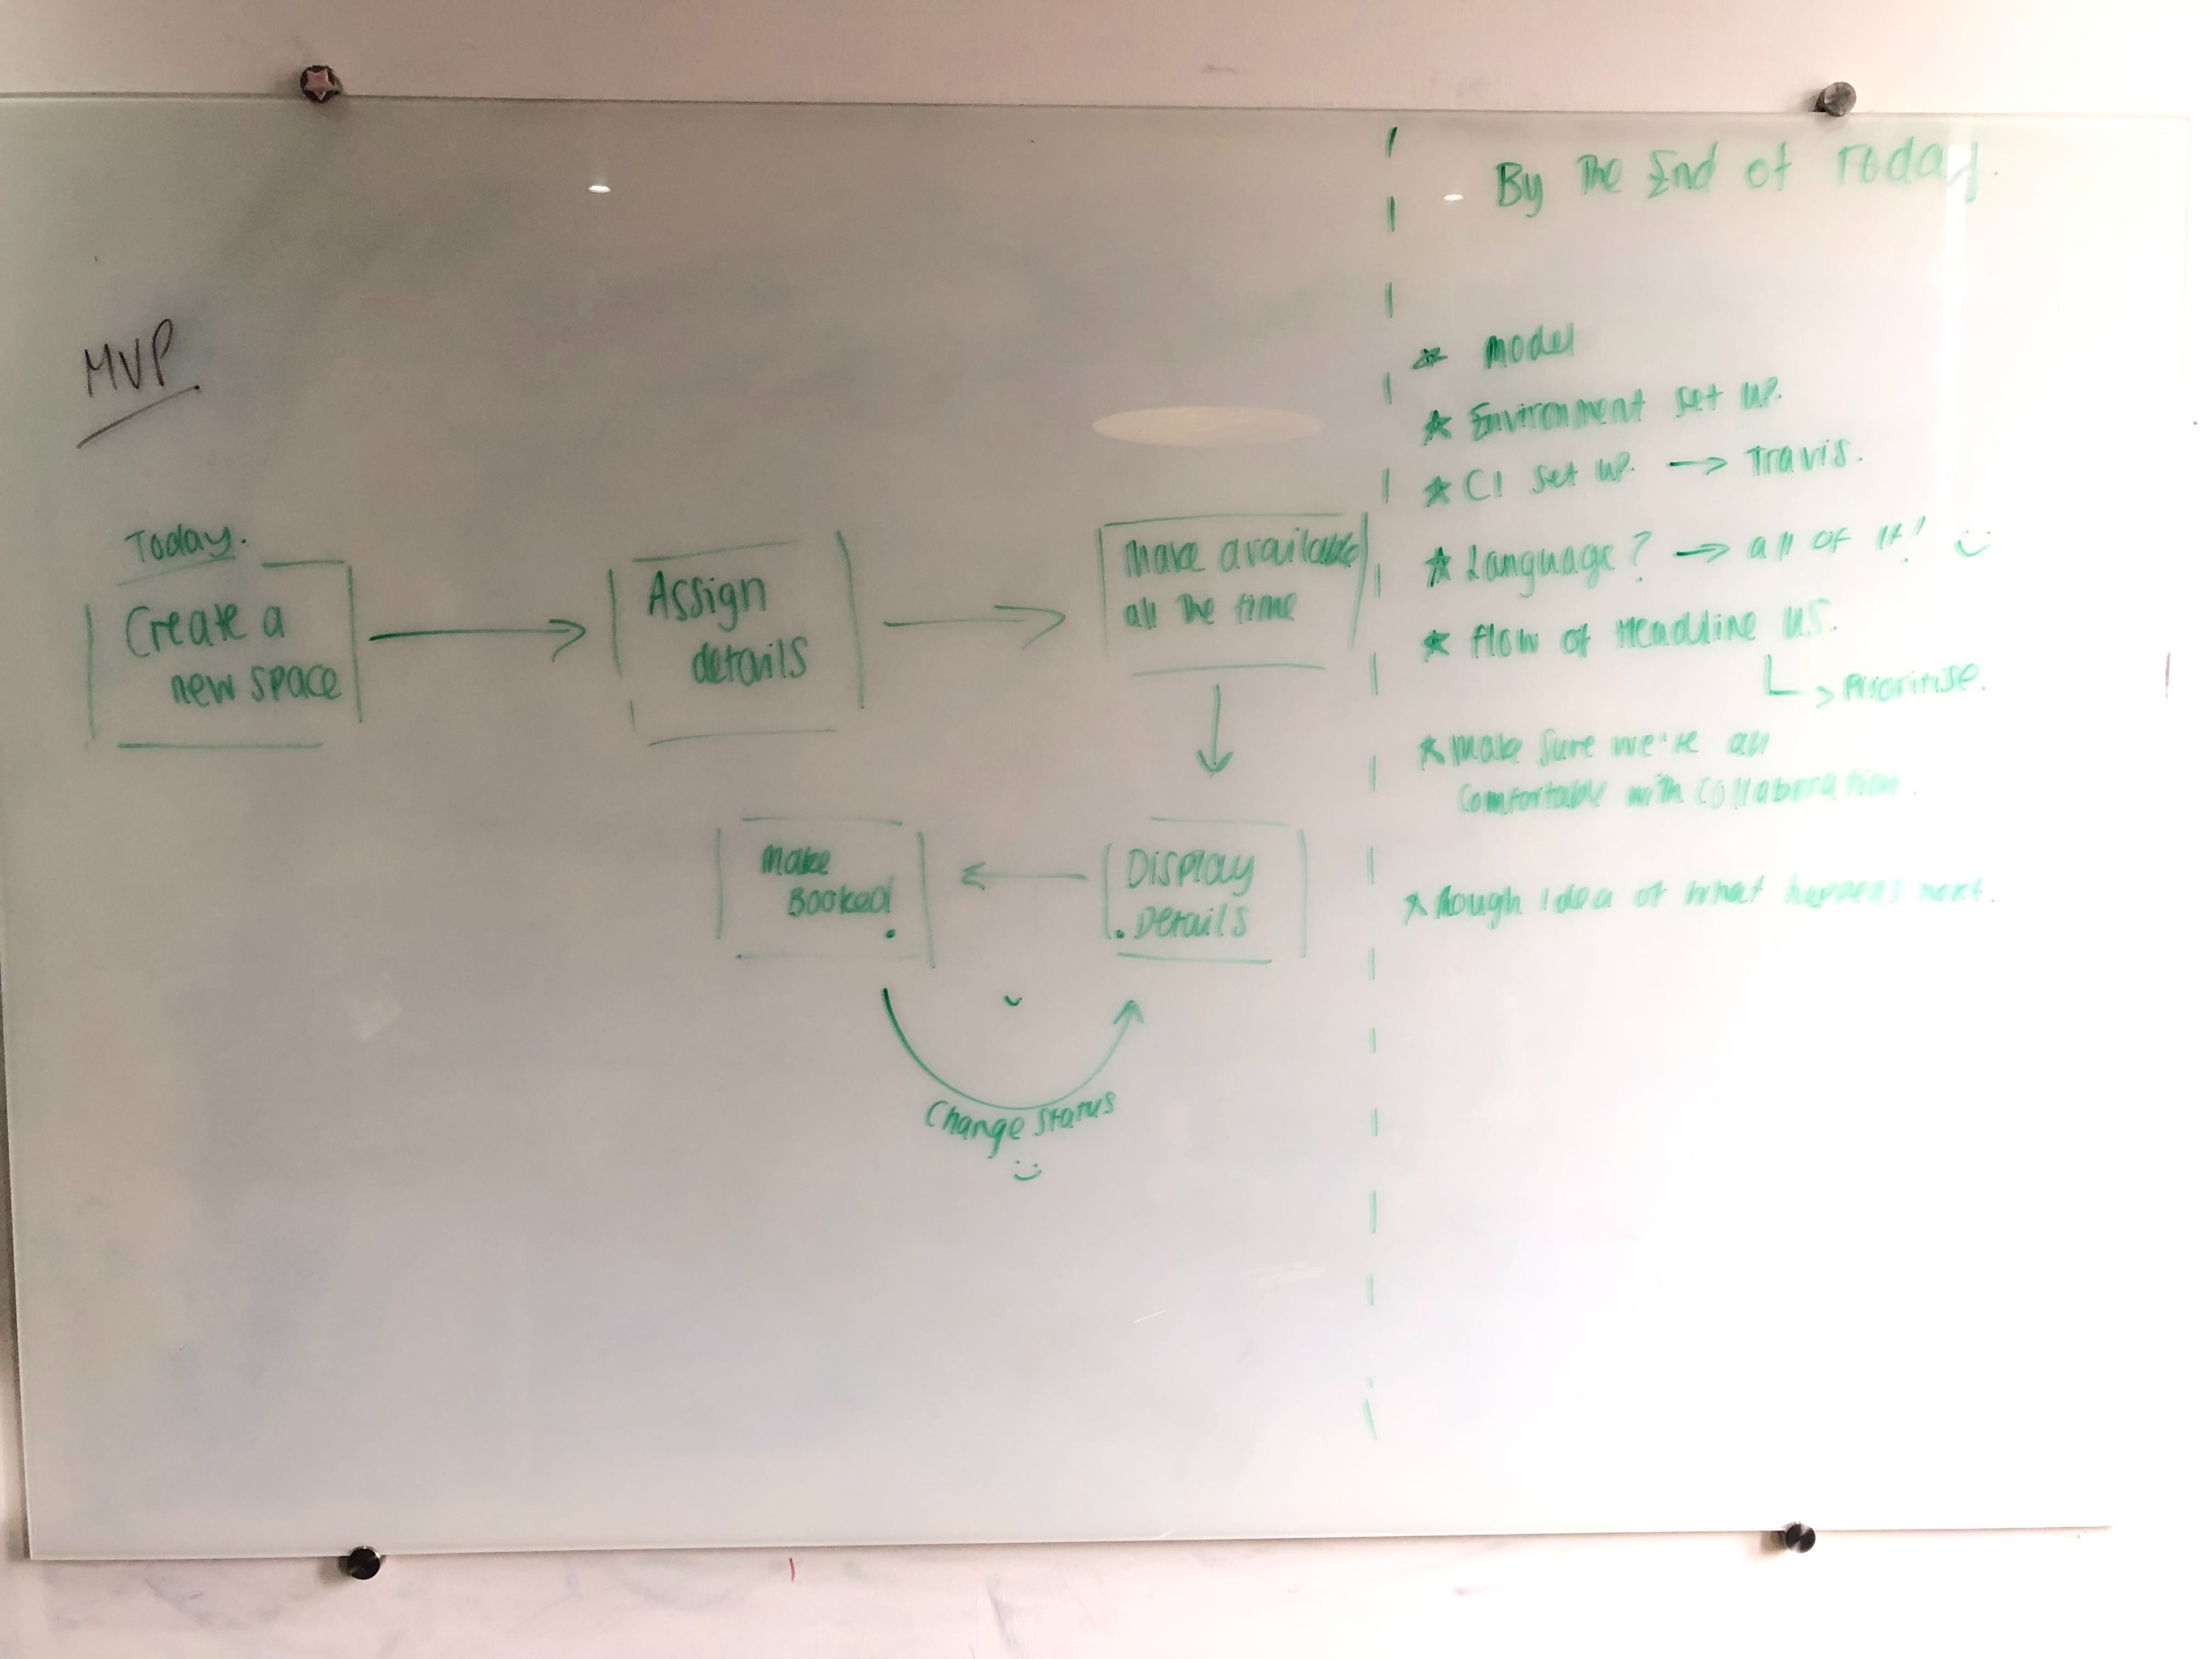 MVP
Today.
Create a
new space
Assign
details
Make available
all the time
Display
Details
Make
Booked
Change Status
By The End of Today.
Model
Environment set up.
CI set up. → Travis.
Language? → all of it!
Flow of Headline U.S.
Prioritise.
Make sure we're all
comfortable with collaboration.
Rough idea of what happens next.